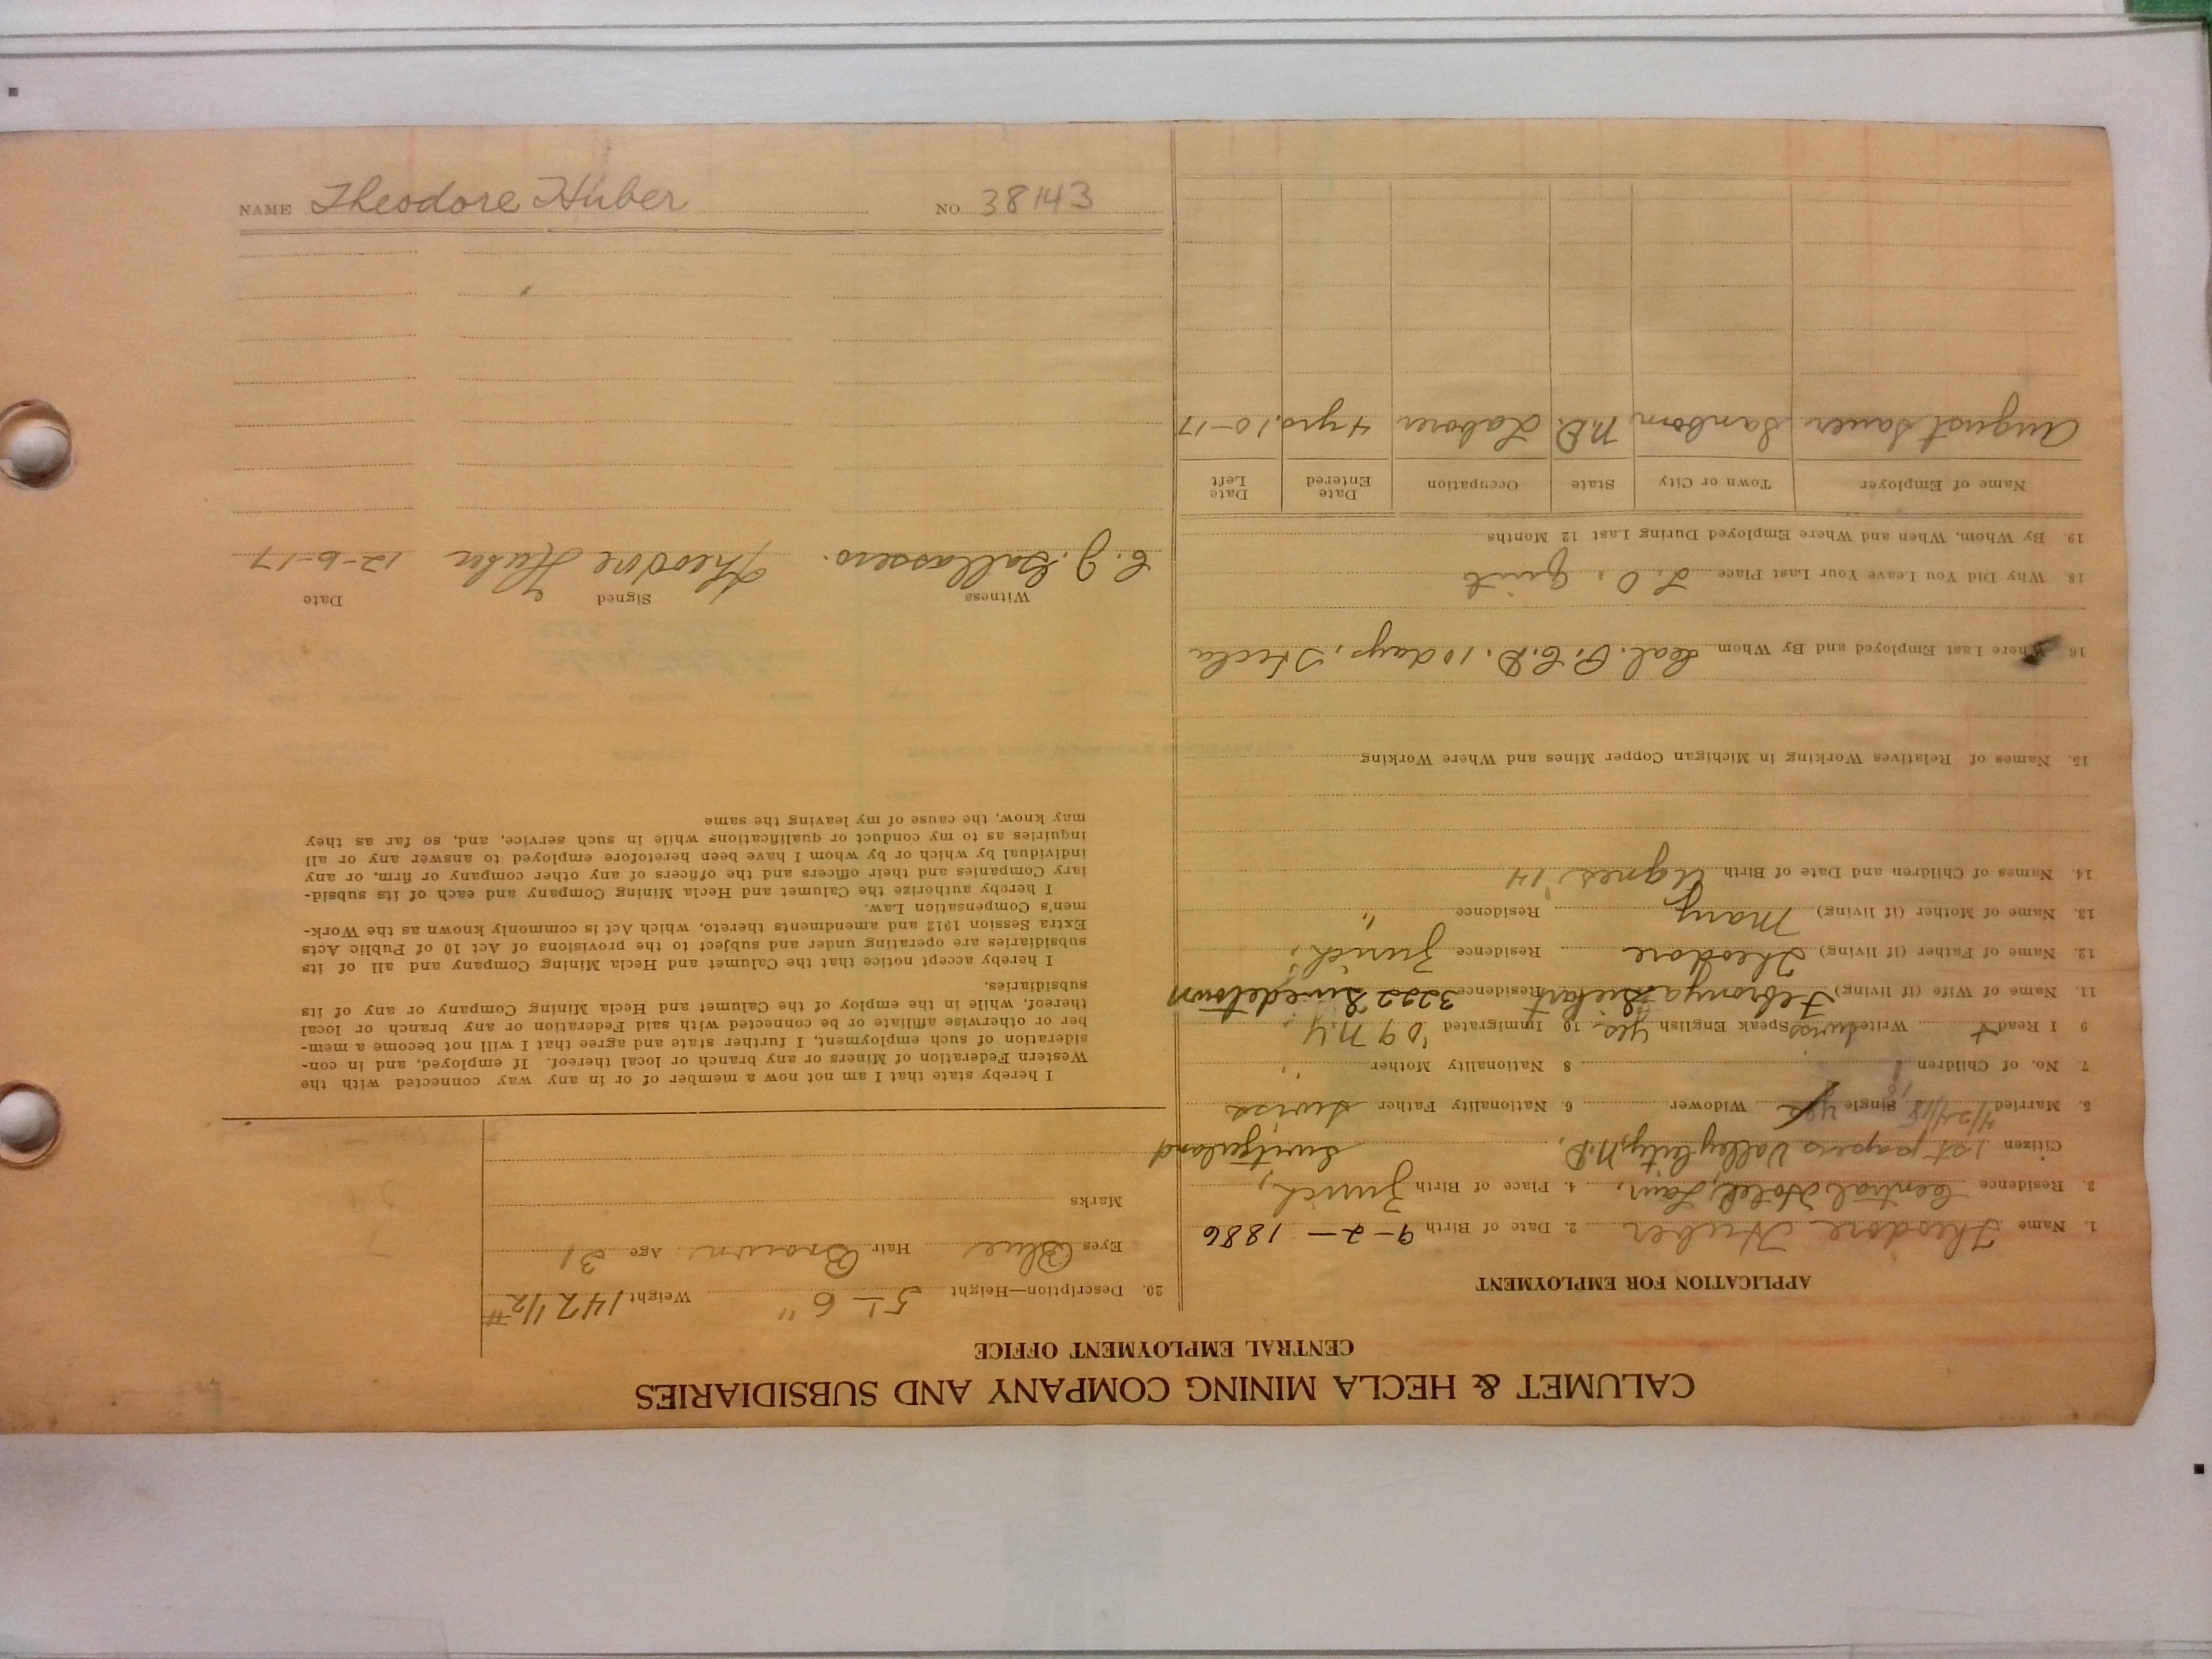 CALUMET & HECLA MINING COMPANY AND SUBSIDIARIES
CENTRAL EMPLOYMENT OFFICE
APPLICATION FOR EMPLOYMENT
1. Name Theodore Huber 2. Date of Birth 9-2-1886
3. Residence Central Hotel, Laur. 4. Place of Birth Zurich,
Citizen 1st papers Valley City, N.D. Switzerland
5. Married 4/24/18 Single yes Widower 6. Nationality Father Swiss
7. No. of Children 1 8 Nationality Mother "
9 I Read + Write Swiss Speak English yes 10 Immigrated '09 N.Y.
11. Name of Wife (if living) Febronya Residence 3222 Swedetown
12. Name of Father (if living) Theodore Residence Zurich,
13. Name of Mother (if living) Mary Residence "
14. Names of Children and Date of Birth Agnes '14
15. Names of Relatives Working in Michigan Copper Mines and Where Working
16. Where Last Employed and By Whom 10 days, Hecla
18. Why Did You Leave Your Last Place L.O. Quit
19. By Whom, When and Where Employed During Last 12 Months
Name of Employer Town or City State Occupation Date Entered Date Left
August Sauer Sanborn N.D. Laborer 4 yrs. 10-17
20. Description—Height 5'-6" Weight 147 1/2 #
Eyes Blue Hair Brown Age 31
Marks
I hereby state that I am not now a member of or in any way connected with the
Western Federation of Miners or any branch or local thereof. If employed, and in con-
sideration of such employment, I further state and agree that I will not become a mem-
ber or otherwise affiliate or be connected with said Federation or any branch or local
thereof, while in the employ of the Calumet and Hecla Mining Company or any of its
subsidiaries.
I hereby accept notice that the Calumet and Hecla Mining Company and all of its
subsidiaries are operating under and subject to the provisions of Act 10 of Public Acts
Extra Session 1912 and amendments thereto, which Act is commonly known as the Work-
men's Compensation Law.
I hereby authorize the Calumet and Hecla Mining Company and each of its subsid-
iary Companies and their officers and the officers of any other company or firm, or any
individual by which or by whom I have been heretofore employed to answer any or all
inquiries as to my conduct or qualifications while in such service, and, so far as they
may know, the cause of my leaving the same
Witness Signed Date
Theodore Huber 12-6-17
NAME Theodore Huber NO. 38143